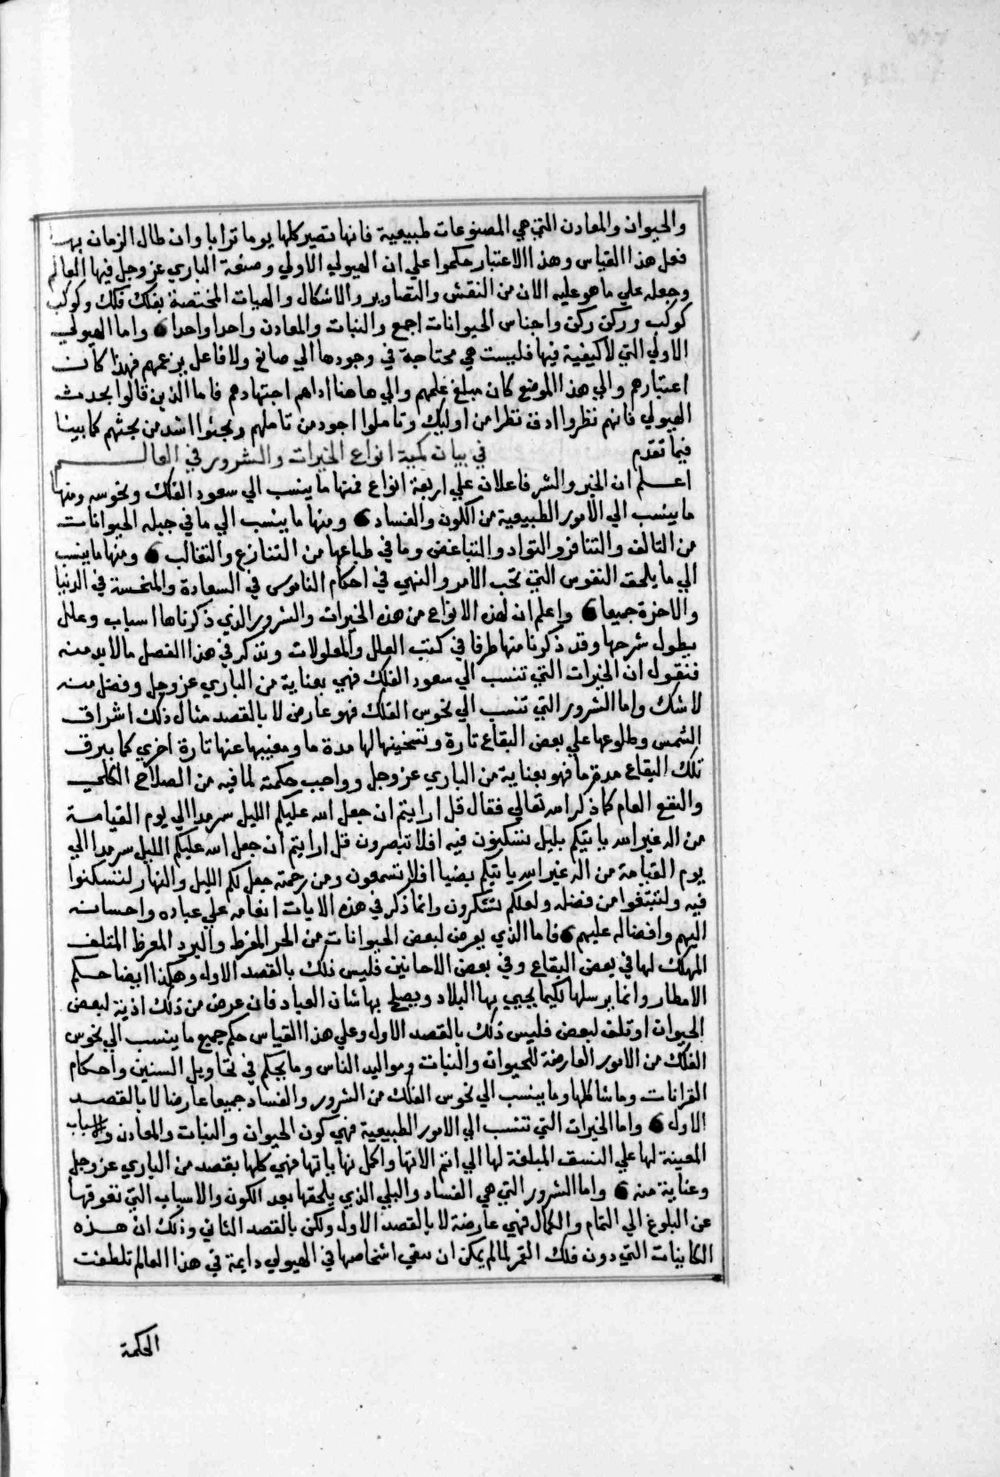 والحيوان والمعادن التي هي المصنوعات طبيعية فانها تصير كلها يوما ترابا وان طال الزمان بها
فعل هذا القياس وهذا الاعتبار حكموا علي ان الهيولي الاولي وصنعة الباري عز وجل فيها العالم
وجعله علي ما هو عليه الان من النقش والتصاوير والاشكال والهيات المختصة بفلك فلك وكوكب
كوكب وركن ركن واجناس الحيوانات اجمع والنبات والمعادن واحدا واحدا واما الهيولي
الاولي التي لا كيفية فيها فليست هي محتاجة في وجودها الي صانع ولا فاعل بزعمهم فهذا كان
اعتبارهم والي هذا الموضع كان مبلغ علمهم والي هاهنا اداهم اجتهادهم فاما الذين قالوا بحدث
الهيولي فانهم نظروا ادق نظرا من اوليك وتاملوا اجود من تاملهم وبحثوا اشد من بحثهم كما بينا
فيما تقدم في بيان كمية انواع الخيرات والشرور في العالم
اعلم ان الخير والشر فاعلان علي اربعة انواع فمنها ما ينسب الي سعود الفلك ونحوسه ومنها
ما ينسب الي الامور الطبيعية من الكون والفساد ومنها ما ينسب الي ما في جبلة الحيوانات
من التالف والتنافر والتواد والتباغض وما في طباعها من التنازع والتغالب ومنها ما ينسب
الي ما يلحق النفوس التي تحت الامر والنهي في احكام الناموس في السعادة والمنحسة في الدنيا
والاخرة جميعا واعلم ان لهذه الانواع من هذه الخيرات والشرور الذي ذكرناها اسباب وعلل
يطول شرحها وقد ذكرنا منها طرفا في كتب العلل والمعلولات ونذكر في هذا الفصل مالابد منه
فنقول ان الخيرات التي تنسب الي سعود الفلك فهي بعناية من الباري عز وجل وفضل منه
لاشك واما الشرور التي تنسب الي نحوس الفلك فهو عارض لا بالقصد مثال ذلك اشراق
الشمس وطلوعها علي بعض البقاع تارة وتسخينها لها مدة ما ومغيبها عنها تارة اخري كما يبرق
تلك البقاع مدة ما فهو بعناية من الباري عز وجل وواجب حكمته لما فيه من الصلاح الكلي
والنفع العام كما ذكر الله تعالي فقال قل ارايتم ان جعل الله عليكم الليل سرمدا الي يوم القيامة
من اله غير الله ياتيكم بليل تسكنون فيه افلا تبصرون قل ارايتم ان جعل الله عليكم الليل سرمدا الي
يوم القيامة من اله غير الله ياتيكم بضيا افلا تسمعون ومن رحمته جعل لكم الليل والنهار لتسكنوا
فيه ولتبتغوا من فضله ولعلكم تشكرون وانما ذكر في هذه الايات انعامه علي عباده واحسانه
اليهم وافضاله عليهم فاما الذي يعرض لبعض الحيوانات من الحر المفرط والبرد المفرط المتلف
المهلك لها في بعض البقاع وفي بعض الاحايين فليس ذلك بالقصد الاوله وهكذا ايضا حكم
الامطار وانما يرسلها لكيما يحيي بها البلاد ويصلح بها شان العباد فان عرض من ذلك اذية لبعض
الحيوان او تلف لبعض فليس ذلك بالقصد الاوله وعلي هذا القياس حكم جميع ما ينسب الي نحوس
الفلك من الامور العارضة للحيوان والنبات ومواليد الناس وما يحكم في تحاويل السنين واحكام
القرانات وما شاكلها وما ينسب الي نحوس الفلك من الشرور والفساد جميعا عارضا لا بالقصد
الاول واما الخيرات التي تنسب الي الامور الطبيعية فهي كون الحيوان والنبات والمعادن والاسباب
المعينة لها علي النسق المبلغة لها الي اتم الاتها واكمل نهاياتها فهي كلها بقصد من الباري عز وجل
وعناية منه واما الشرور التي هي الفساد والبلي الذي يلحقها بعد الكون والاسباب التي تعوقها
عن البلوغ الي التمام والكمال فهي عارضة لا بالقصد الاوله ولكن بالقصد الثاني وذلك ان هذه
الكاينات التي دون فلك القمر لما لم يمكن ان تبقي اشخاصها في الهيولي دايمة في هذا العالم تلطفت
الحكمة